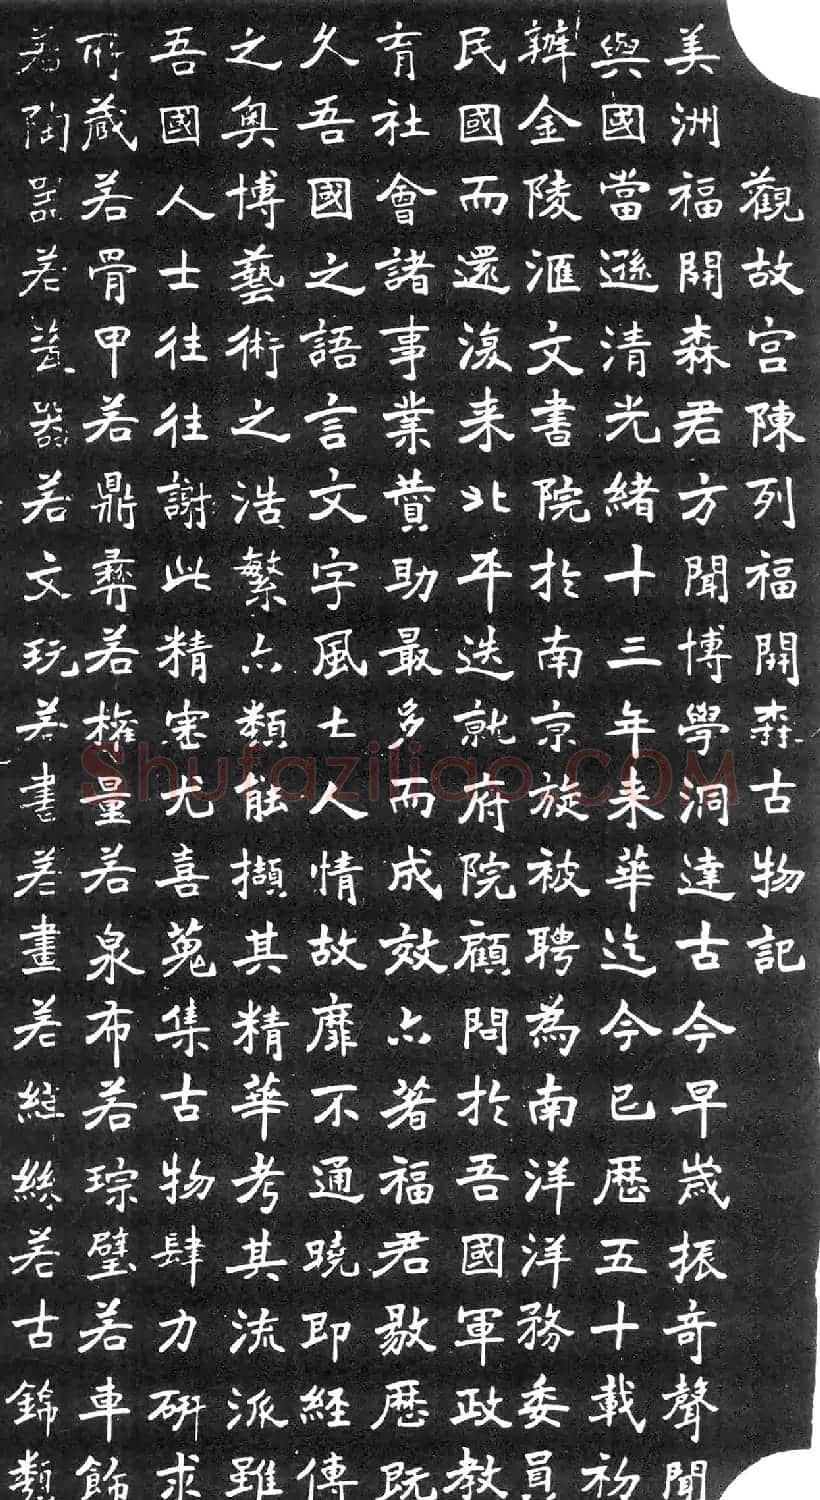 觀故宫陳列福開森古物記
美洲福開森君方聞博學洞達古今早歲振奇聲聞
與國當遜清光緒十三年来華迄今已歷五十載初
辦金陵滙文書院於南京旋被聘為南洋洋務委員
民國而還澓来北平迭就府院顧問於吾國軍政教
育社會諸事業賛助最多而成效亦著福君敭歷既
久吾國之語言文字風土人情故靡不通曉即經傳
之奥博藝術之浩繁亦類能擷其精華考其流派雖
吾國人士往往謝此精密尤喜蒐集古物肆力研求
所藏若骨甲若鼎彝若權量若泉布若琮璧若車飾
若陶器若瓷器若文玩若書若畫若縫絲若古錦類
Shufaziliao.COM